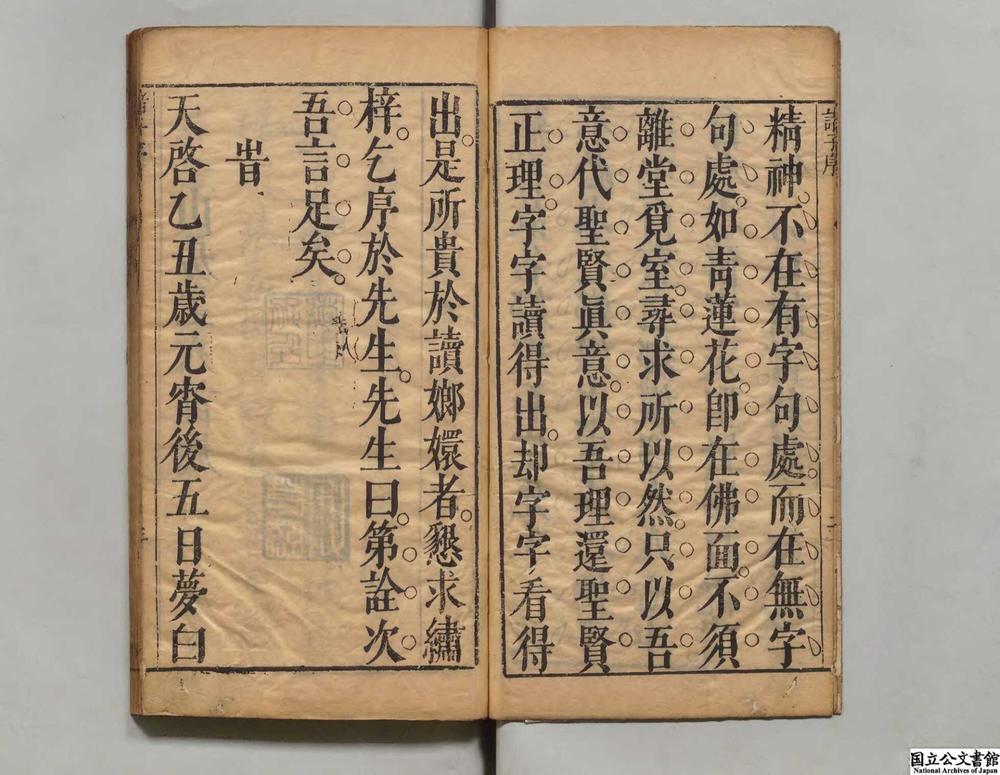 精神不在有字句處而在無字
句處如青蓮花卽在佛面不須
離堂覓室尋求所以然只以吾
意代聖賢眞意以吾理還聖賢
正理字字讀得出却字字看得
出是所貴於讀嫏嬛者懇求繡
梓乞序於先生先生曰第詮次
吾言足矣
旹
天啓乙丑歲元宵後五日夢白
国立公文書館
National Archives of Japan